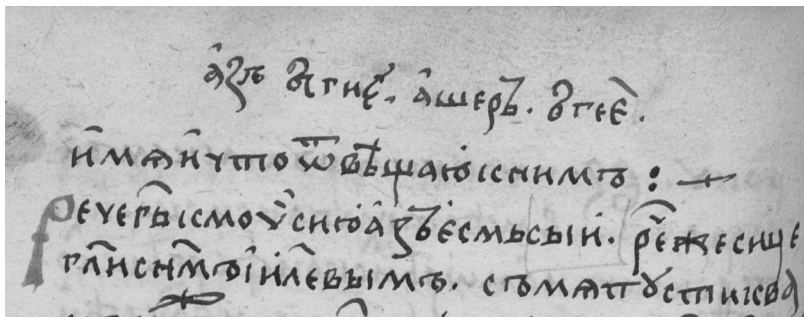 а҆зъ ꙋгис҄. а҆шеръ. ꙋгее҄.
и҆мѧ и҆ что ѿвѣщаю҆ к ним ъ : —
Рече г҃ь к моѵ҆сию҆ а҆зъ е҆смь сыи҆. рⷱ҇е же сице
гл҃и сн҃мъ і҆и҃левымъ. съ мѧ пꙋсти к ва